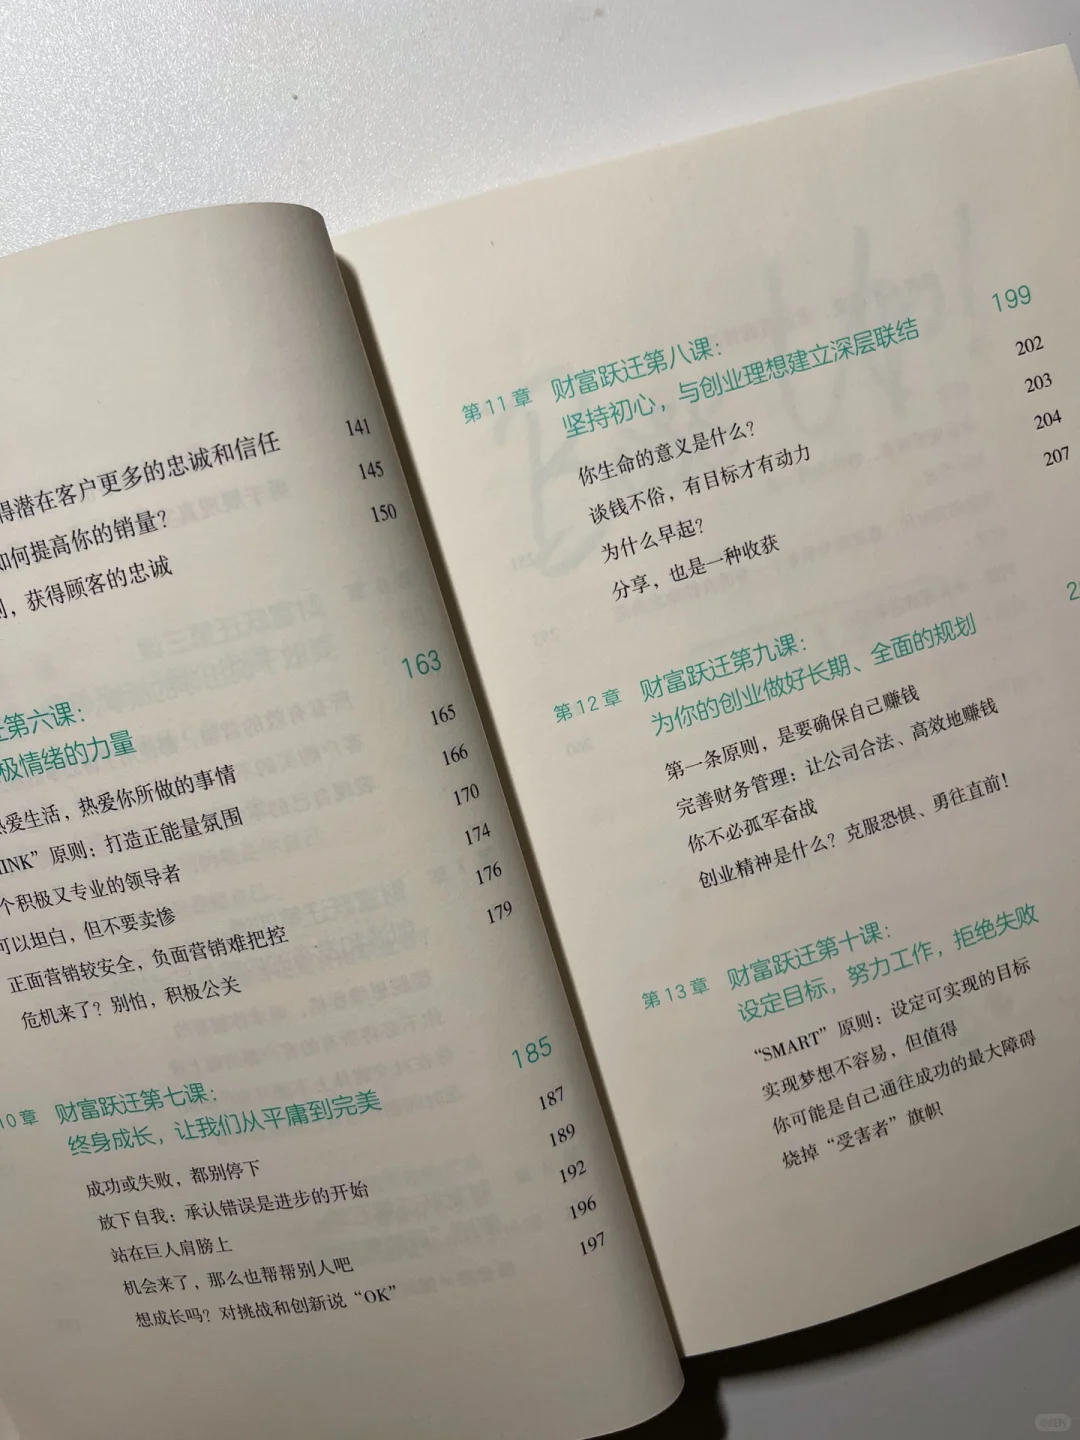 得潜在客户更多的忠诚和信任 141
如何提高你的销量？ 145
，获得顾客的忠诚 150
第六课： 163
极情绪的力量
热爱生活，热爱你所做的事情 165
INK”原则：打造正能量氛围 166
个积极又专业的领导者 170
可以坦白，但不要卖惨 174
正面营销较安全，负面营销难把控 176
危机来了？别怕，积极公关 179
10 章 财富跃迁第七课： 185
终身成长，让我们从平庸到完美
成功或失败，都别停下 187
放下自我：承认错误是进步的开始 189
站在巨人肩膀上 192
机会来了，那么也帮帮别人吧 196
想成长吗？对挑战和创新说“OK” 197
第 11 章 财富跃迁第八课： 199
坚持初心，与创业理想建立深层联结
你生命的意义是什么？ 202
谈钱不俗，有目标才有动力 203
为什么早起？ 204
分享，也是一种收获 207
第 12 章 财富跃迁第九课：
为你的创业做好长期、全面的规划
第一条原则，是要确保自己赚钱
完善财务管理：让公司合法、高效地赚钱
你不必孤军奋战
创业精神是什么？克服恐惧、勇往直前！
第 13 章 财富跃迁第十课：
设定目标，努力工作，拒绝失败
“SMART”原则：设定可实现的目标
实现梦想不容易，但值得
你可能是自己通往成功的最大障碍
烧掉“受害者”旗帜